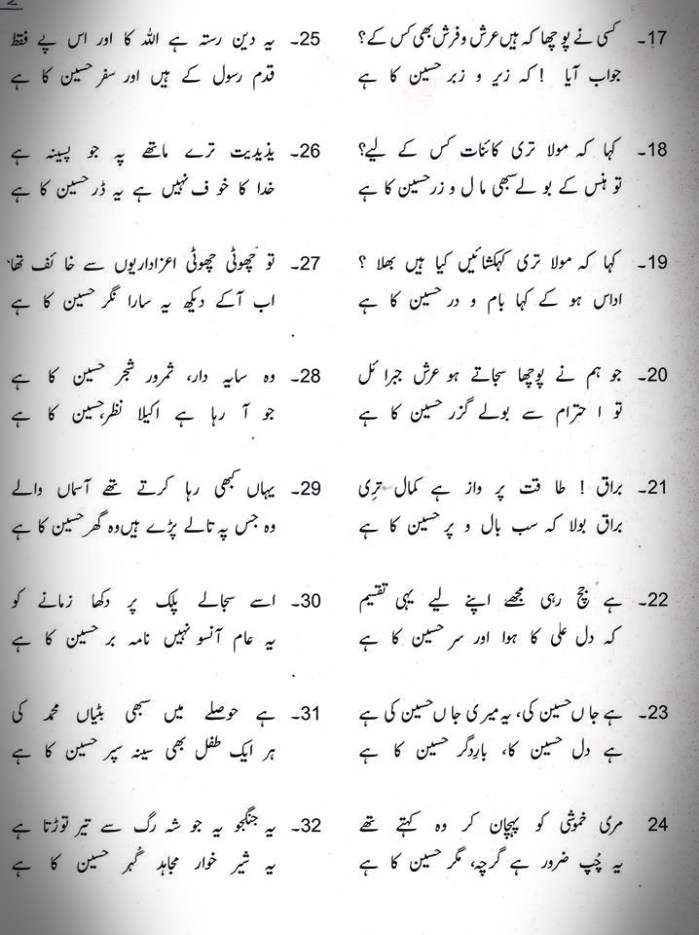 2
17۔ کسی نے پوچھا کہ ہیں عرش و فرش بھی کس کے؟
جواب آیا ! کہ زیر و زبر حسین کا ہے
18۔ کہا کہ مولا تری کائنات کس کے لیے؟
تو ہنس کے بولے سبھی مال و زر حسین کا ہے
19۔ کہا کہ مولا تری کہکشائیں کیا ہیں بھلا ؟
اداس ہو کے کہا بام و در حسین کا ہے
20۔ جو ہم نے پوچھا سجاتے ہو عرش جبرائل
تو احترام سے بولے گزر حسین کا ہے
21۔ براق ! طاقت پرواز ہے کمال تری
براق بولا کہ سب بال و پر حسین کا ہے
22۔ ہے جچ رہی مجھے اپنے لیے یہی تقسیم
کہ دل علی کا ہوا اور سر حسین کا ہے
23۔ ہے جاں حسین کی، یہ میری جاں حسین کی ہے
ہے دل حسین کا، بارِدگر حسین کا ہے
24 مری خموشی کو پہچان کر وہ کہتے تھے
یہ چُپ ضرور ہے گرچہ، مگر حسین کا ہے
25۔ یہ دین رستہ ہے اللہ کا اور اس پے فقط
قدم رسول کے ہیں اور سفر حسین کا ہے
26۔ یذیدیت ترے ماتھے پہ جو پسینہ ہے
خدا کا خوف نہیں ہے یہ ڈر حسین کا ہے
27۔ تو چھوٹی چھوٹی اعزاداریوں سے خائف تھا
اب آکے دیکھ یہ سارا نگر حسین کا ہے
28۔ وہ سایہ دار، ثمرور شجر حسین کا ہے
جو آ رہا ہے اکیلا نظر، حسین کا ہے
29۔ یہاں کبھی رہا کرتے تھے آسماں والے
وہ جس پہ تالے پڑے ہیں وہ گھر حسین کا ہے
30۔ اسے سجالے پلک پر دکھا زمانے کو
یہ عام آنسو نہیں نامہ بر حسین کا ہے
31۔ ہے حوصلے میں سبھی بٹیاں محمد کی
ہر ایک طفل بھی سینہ سپر حسین کا ہے
32۔ یہ جنگجو یہ جو شہ رگ سے تیر توڑتا ہے
یہ شیر خوار مجاہد گہر حسین کا ہے